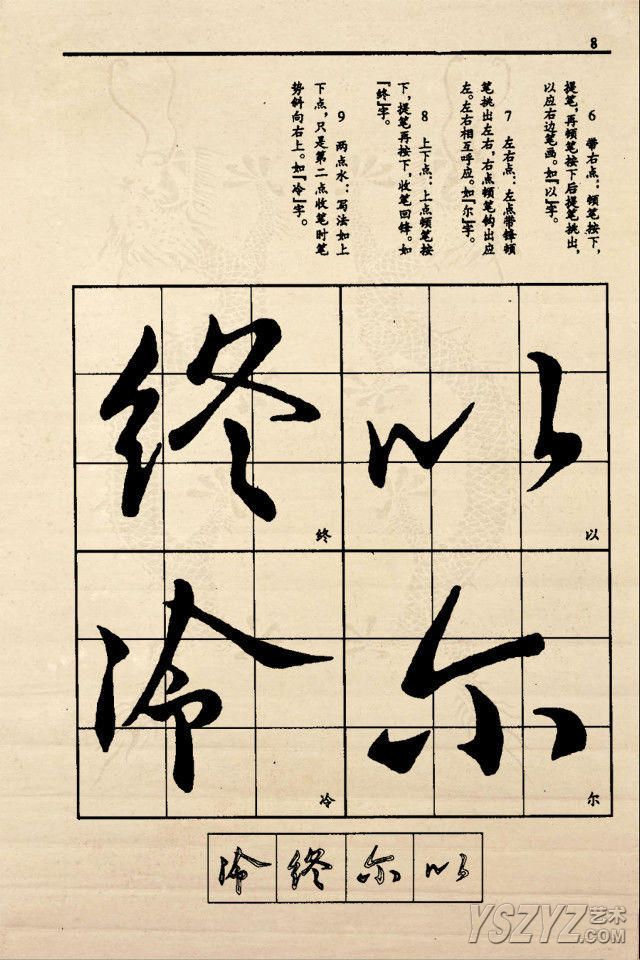 8
6 带右点：顿笔按下，
提笔，再顿笔按下后提笔挑出，
以应右边笔画。如『以』字。
7 左右点：左点带锋顿
笔挑出左右，右点顿笔钩出应
左。左右相互呼应。如『尔』字。
8 上下点：上点顿笔按
下，提笔再按下，收笔回锋。如
『终』字。
9 两点水：写法如上
下点，只是第二点收笔时笔
势斜向右上。如『冷』字。
以
以
尔
尔
终
终
冷
冷
冷终尔以
YSZYZ艺术
.COM